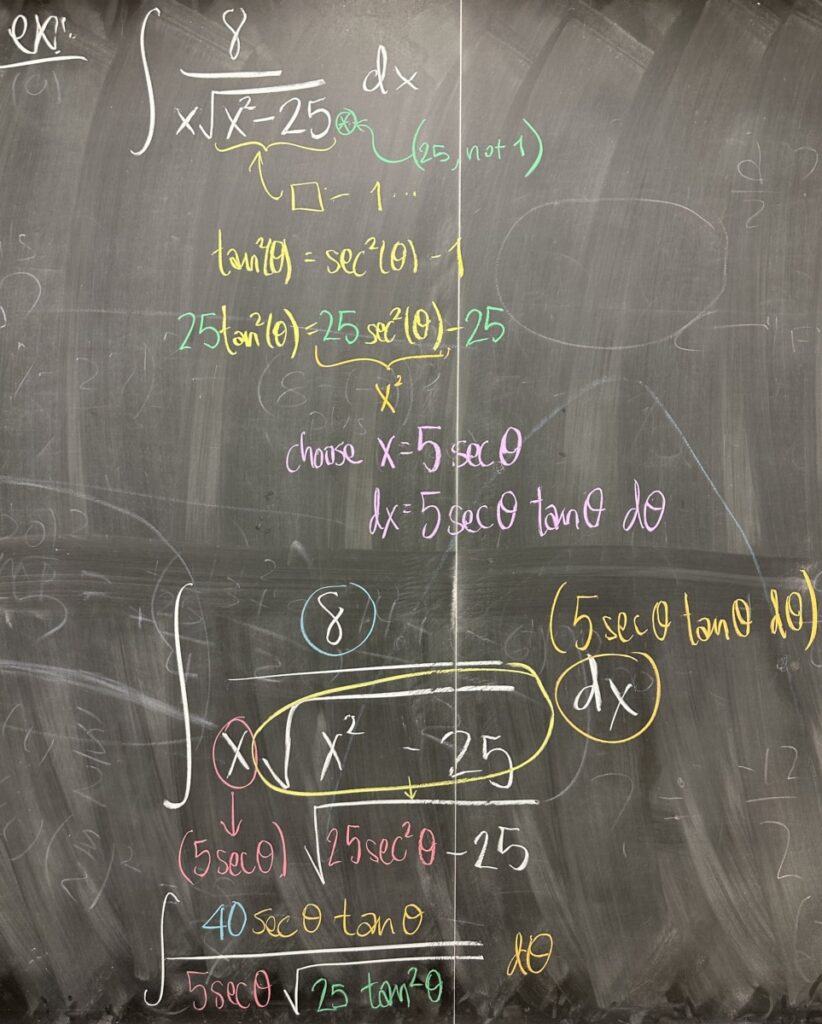 ex:
∫ 8 / (x√(x²-25)) dx
⊛ (25, not 1)
□ - 1 ...
tan²(θ) = sec²(θ) - 1
25tan²(θ) = 25 sec²(θ) - 25
x²
choose x = 5 sec θ
dx = 5 sec θ tan θ dθ
(5 sec θ tan θ dθ)
∫ 8 / (x√(x² - 25)) dx
(5 sec θ) √(25 sec² θ - 25)
∫ 40 sec θ tan θ / (5 sec θ √(25 tan² θ)) dθ